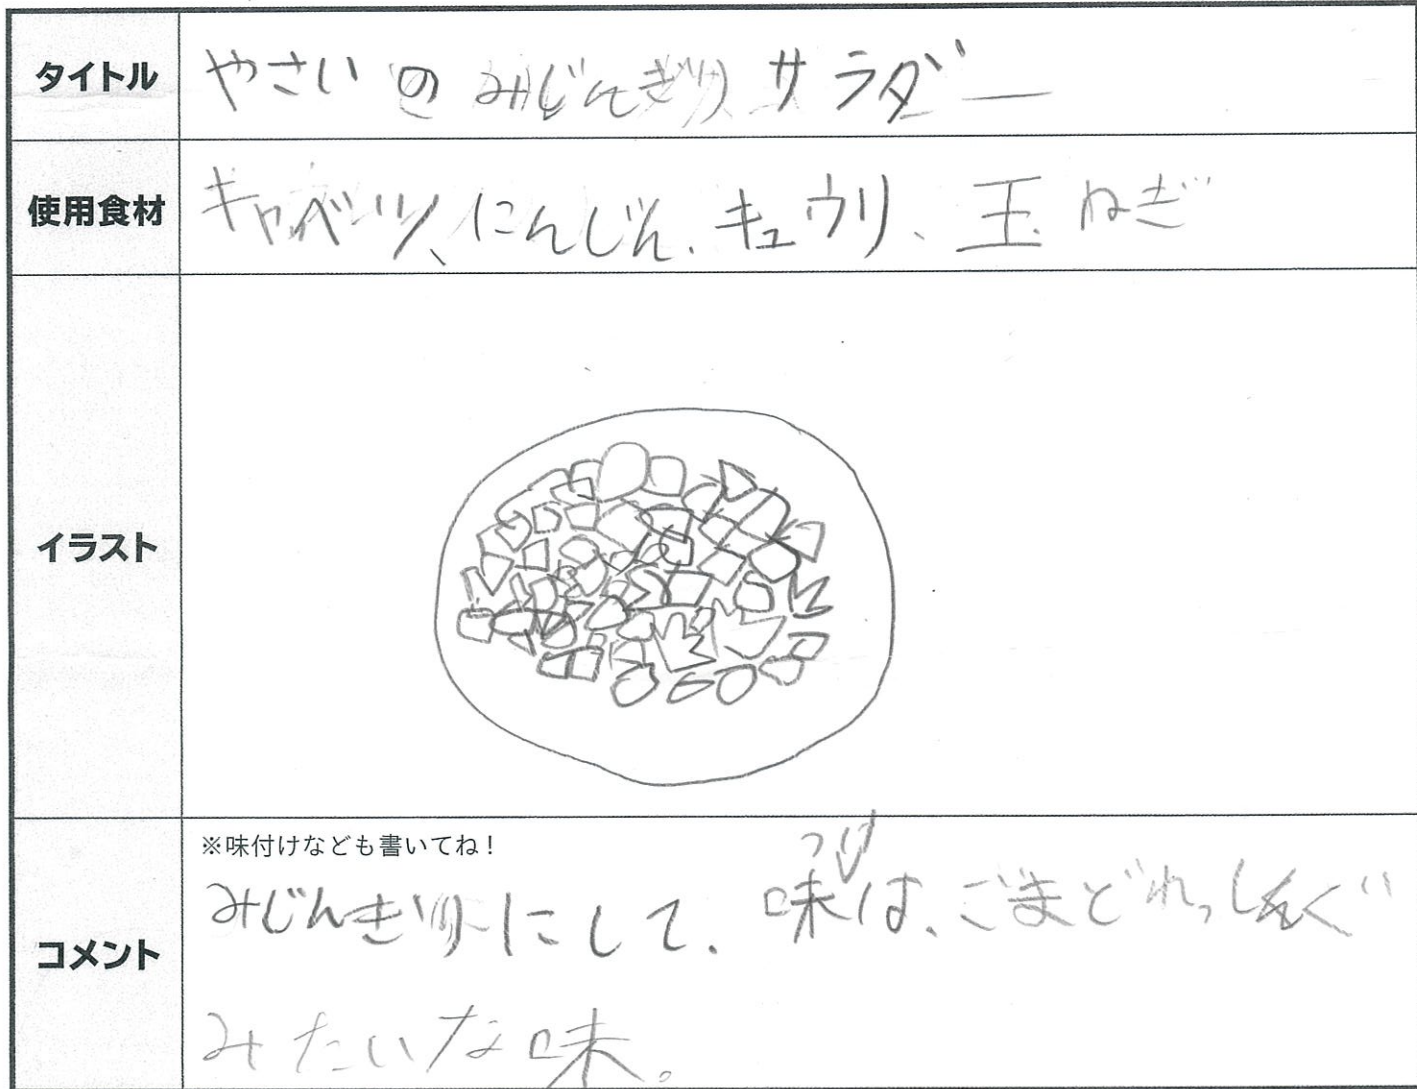 タイトル
やさいのみじんぎりサラダー
使用食材
キャベツ、にんじん、キュウリ、玉ねぎ
イラスト
コメント
※味付けなども書いてね！
みじんぎりにして、味つけは、ごまどれっしんぐ
みたいな味。